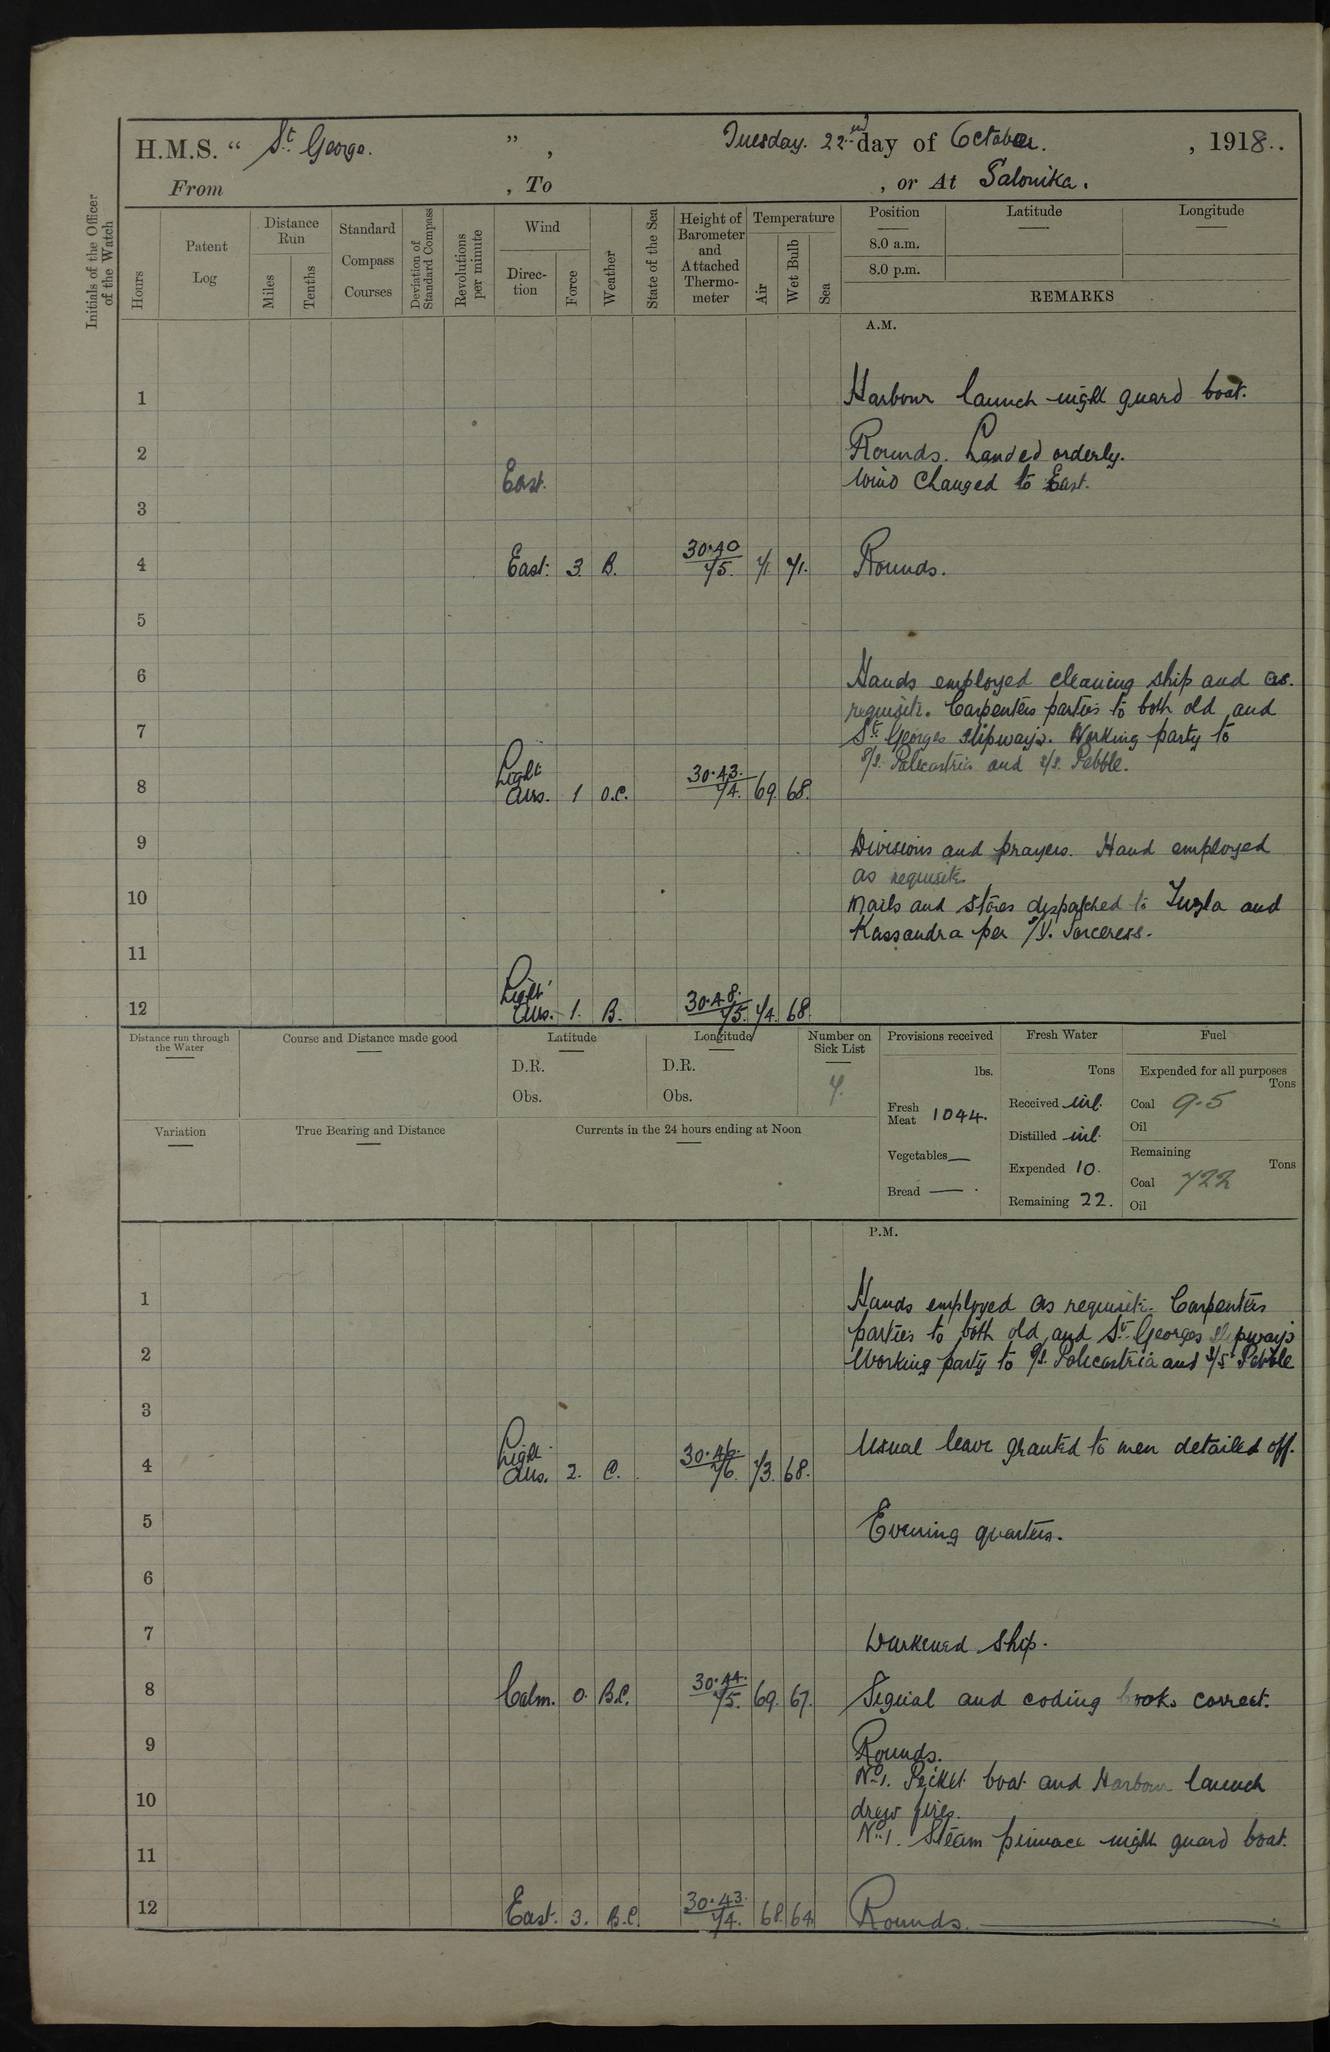 H.M.S. “ St. George. ” , Tuesday. 22nd day of October. , 1918..
From , To , or At Salonika.
Initials of the Officer of the Watch
Hours
Patent Log
Distance Run
Miles
Tenths
Standard Compass Courses
Deviation of Standard Compass
Revolutions per minute
Wind
Direc-tion
Force
Weather
State of the Sea
Height of Barometer and Attached Thermo-meter
Temperature
Air
Wet Bulb
Sea
Position Latitude Longitude
8.0 a.m.
8.0 p.m.
REMARKS
A.M.
1 Harbour launch night guard boat.
2 Rounds. Landed orderly.
East. Wind changed to East.
3
4 East. 3. B. 30.40 75. 71 71. Rounds.
5
6 Hands employed cleaning ship and as.
requisite. Carpenters parties to both old and
7 St. Georges slipways. Working party to
S/S. Policastria and S/S. Pebble.
8 Light airs. 1 O.C. 30.43. 74. 69. 68.
9 Divisions and prayers. Hand employed
as requisite.
10 Mails and stores despatched to Tuzla and
Kassandra per S/Y. Sorceress.
11
12 Light airs. 1. B. 30.48. 75. 74. 68.
Distance run through the Water
Course and Distance made good
Latitude
D.R.
Obs.
Longitude
D.R.
Obs.
Number on Sick List
7.
Provisions received
lbs.
Fresh Meat 1044.
Vegetables —
Bread — .
Fresh Water
Tons
Received nil.
Distilled nil.
Expended 10.
Remaining 22.
Fuel
Expended for all purposes
Tons
Coal 9.5
Oil
Remaining
Tons
Coal 722
Oil
Variation
True Bearing and Distance
Currents in the 24 hours ending at Noon
P.M.
1 Hands employed as requisite. Carpenters
parties to both old and St. Georges slipways
2 Working party to S/S. Policastria and S/S Pebble
3
4 Light airs. 2. C. 30.46. 76. 73. 68. Usual leave granted to men detailed off.
5 Evening quarters.
6
7 Darkened ship.
8 Calm. 0. B.C. 30.44. 75. 69. 67. Signal and coding books correct.
9 Rounds.
No 1. Picket boat and Harbour launch
10 drew fires.
No 1. Steam pinnace night guard boat.
11
12 East. 3. B.C. 30.43. 74. 68. 64. Rounds.